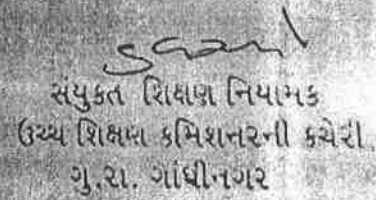 સંયુકત શિક્ષણ નિયામક
ઉચ્ચ શિક્ષણ કમિશનરની કચેરી
ગુ.રા. ગાંધીનગર